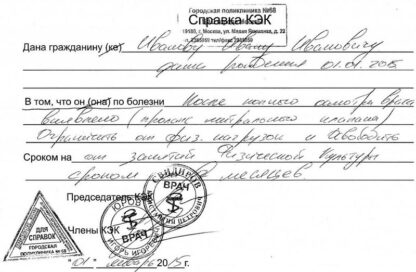 Городская поликлиника №68
Справка КЭК
г. Москва, ул. Малая Якиманка, д. 22
Дана гражданину (ке) Иванову Ивану Ивановичу
дата рождения 01.01.200
В том, что он (она) по болезни После полного осмотра врача
выявлено (пролапс митрального клапана)
Ограничить от физ. нагрузок и освободить
Сроком на от занятий физической культуры
сроком месяцев.
Председатель КЭК
Члены КЭК
ВРАЧ
ВРАЧ
ИГОРЬ ИГОРЕВИЧ
ДЛЯ
СПРАВОК
ГОРОДСКАЯ
ПОЛИКЛИНИКА № 68
"01" 2015г.